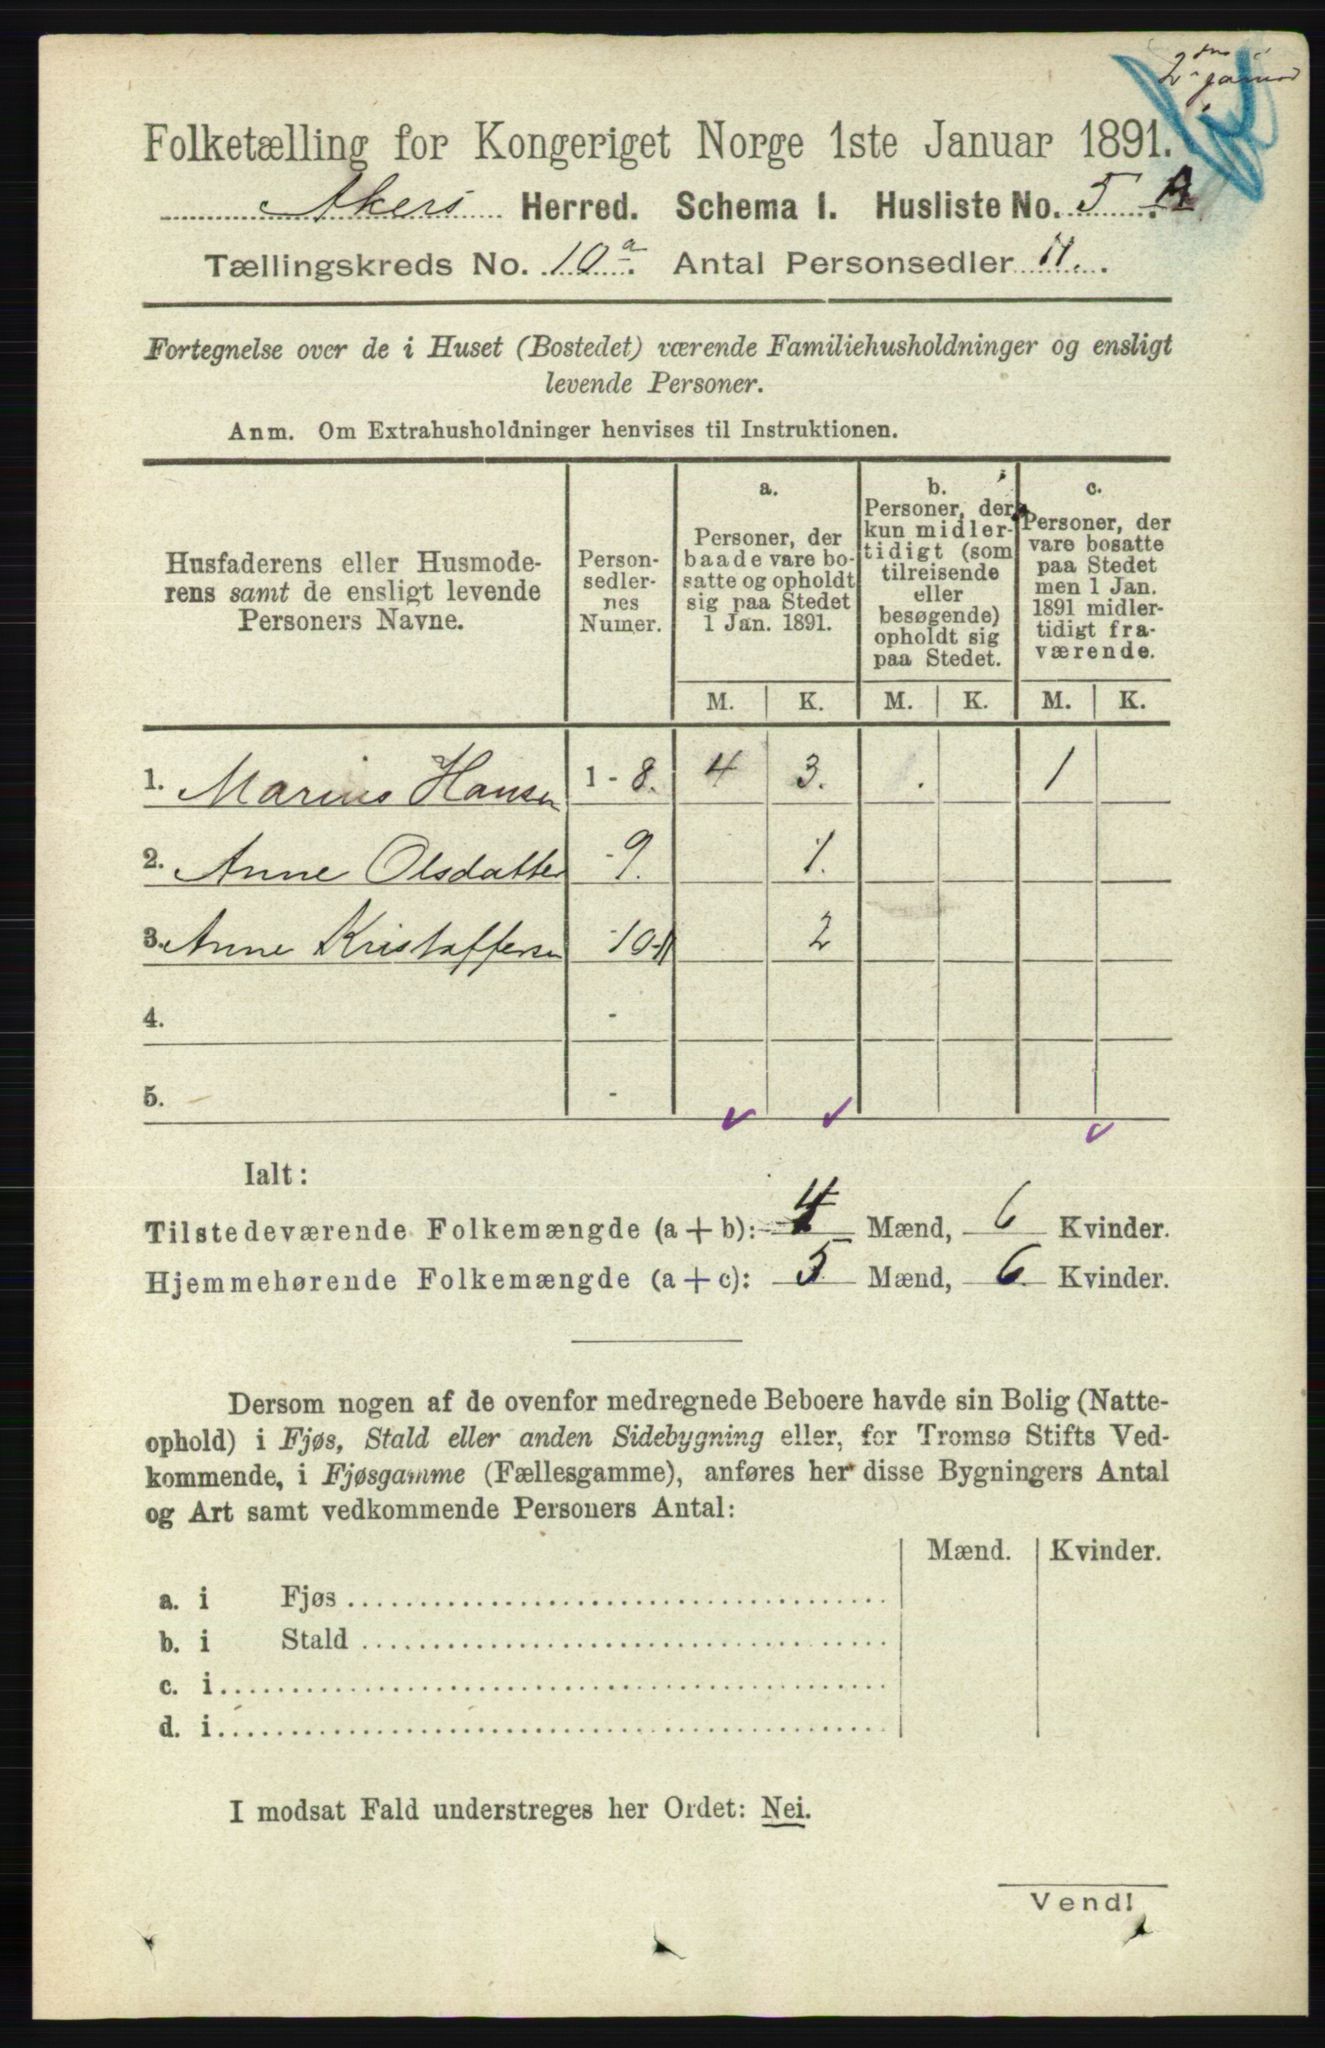 Folketælling for Kongeriget Norge 1ste Januar 1891.
Akers Herred. Schema I. Husliste No. 5 A
Tællingskreds No. 10a. Antal Personsedler 11.
Fortegnelse over de i Huset (Bostedet) værende Familiehusholdninger og ensligt
levende Personer.
Anm. Om Extrahusholdninger henvises til Instruktionen.
Husfaderens eller Husmode-
rens samt de ensligt levende
Personers Navne.
Person-
sedler-
nes
Numer.
a.
Personer, der
baade vare bo-
satte og opholdt
sig paa Stedet
1 Jan. 1891.
b.
Personer, der
kun midler-
tidigt (som
tilreisende
eller
besøgende)
opholdt sig
paa Stedet.
c.
Personer, der
vare bosatte
paa Stedet
men 1 Jan.
1891 midler-
tidigt fra-
værende.
M. K. M. K. M. K.
1. Marius Hansen 1 - 8. 4 3. 1
2. Anne Olsdatter - 9. 1.
3. Anne Kristoffersen - 10-11 2
4. -
5. -
Ialt:
Tilstedeværende Folkemængde (a + b): 4 Mænd, 6 Kvinder.
Hjemmehørende Folkemængde (a + c): 5 Mænd, 6 Kvinder.
Dersom nogen af de ovenfor medregnede Beboere havde sin Bolig (Natte-
ophold) i Fjøs, Stald eller anden Sidebygning eller, for Tromsø Stifts Ved-
kommende, i Fjøsgamme (Fællesgamme), anføres her disse Bygningers Antal
og Art samt vedkommende Personers Antal:
Mænd. Kvinder.
a. i Fjøs
b. i Stald
c. i
d. i
I modsat Fald understreges her Ordet: Nei.
Vend!